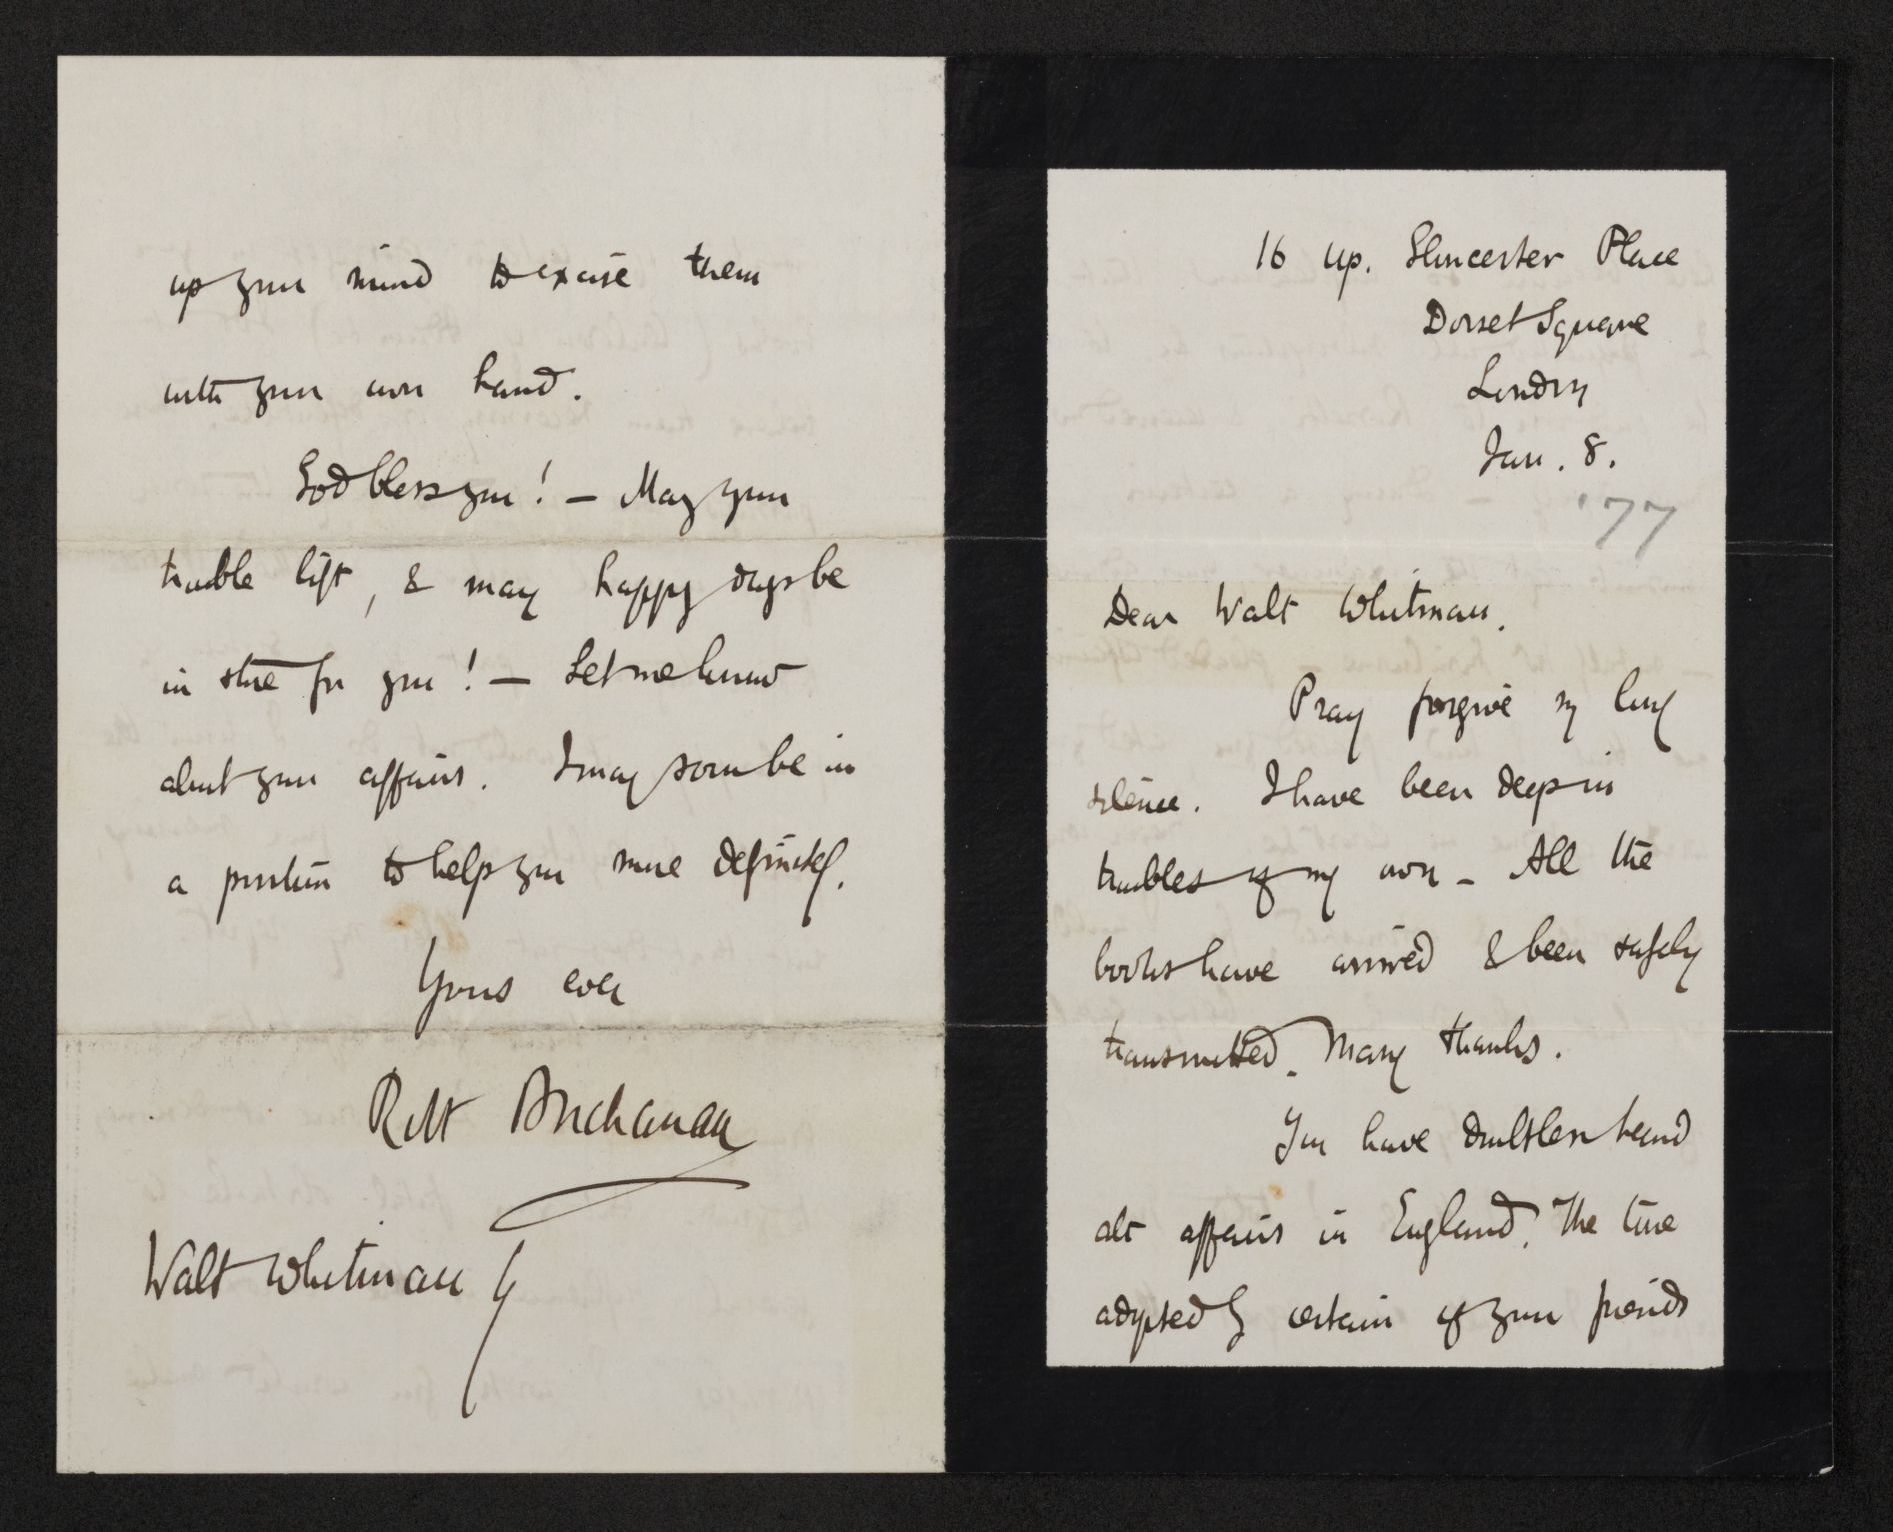 16 Up. Gloucester Place
Dorset Square
London
Jan. 8.
'77
Dear Walt Whitman.
Pray forgive my long
silence. I have been deep in
troubles of my own – All the
books have arrived & been safely
transmitted. Many thanks.
You have doubtless heard
abt affairs in England. The tone
adopted by certain of your friends
up your mind to excise them
with your own hand.
God bless you! – May your
trouble lift, & may happy days be
in store for you! – Let me know
about your affairs. I may soon be in
a position to help you more definitely.
Yours ever
Robt Buchanan
Walt Whitman